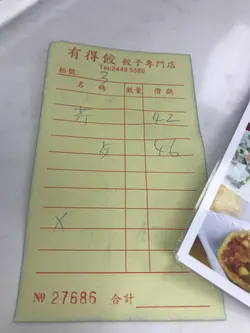 有得餃 餃子專門店
Tel:2449 5369
枱號: 3
名稱 數量 價銀
42
5 46
X
No 27686 合計